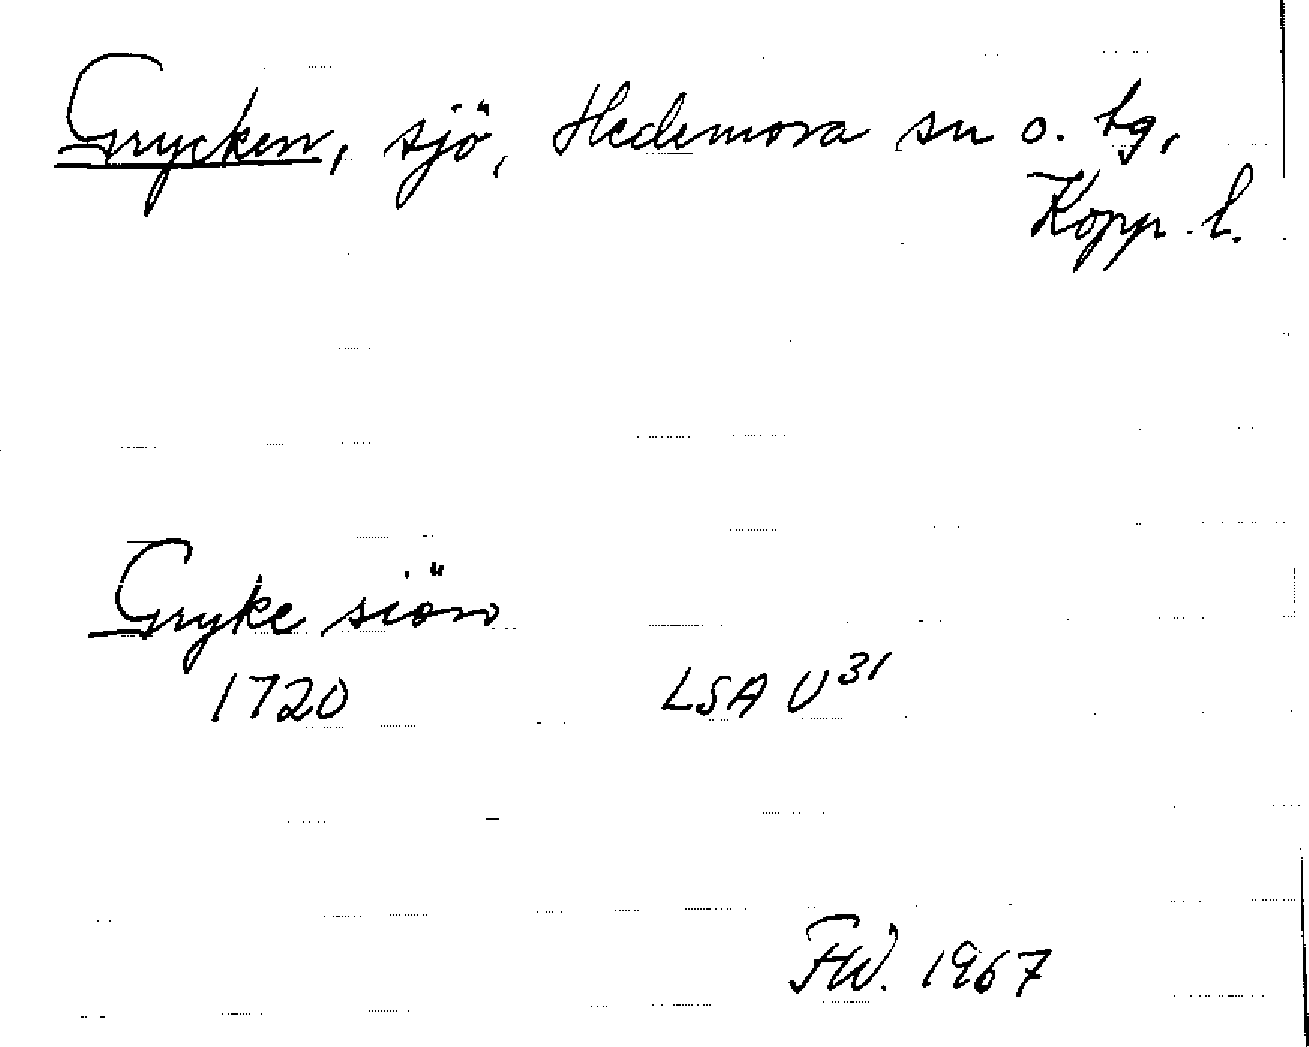 Grycken, sjö, Hedemora sn o. tg,
Kopp. l.
Gryke siön
1720 LSA U31
FW. 1967